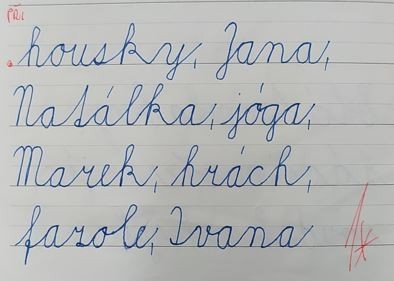 PŘ1
housky, Jana,
Natálka, jóga,
Marek, hrách,
fazole, Ivana